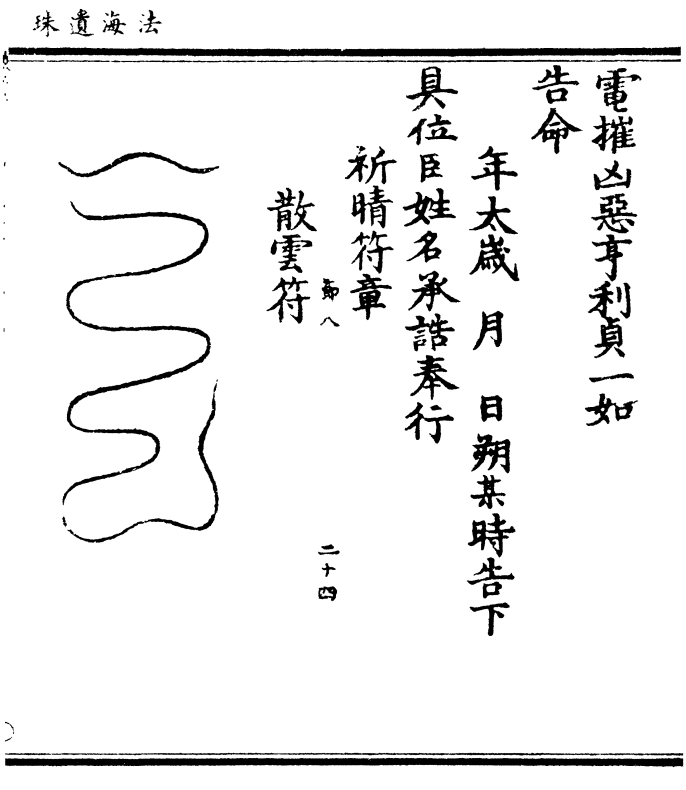 法海遺珠
電摧凶惡亨利貞一如
告命
年太歲 月 日朔某時告下
具位臣姓名承誥奉行
祈晴符章
第八
二十四
散雲符